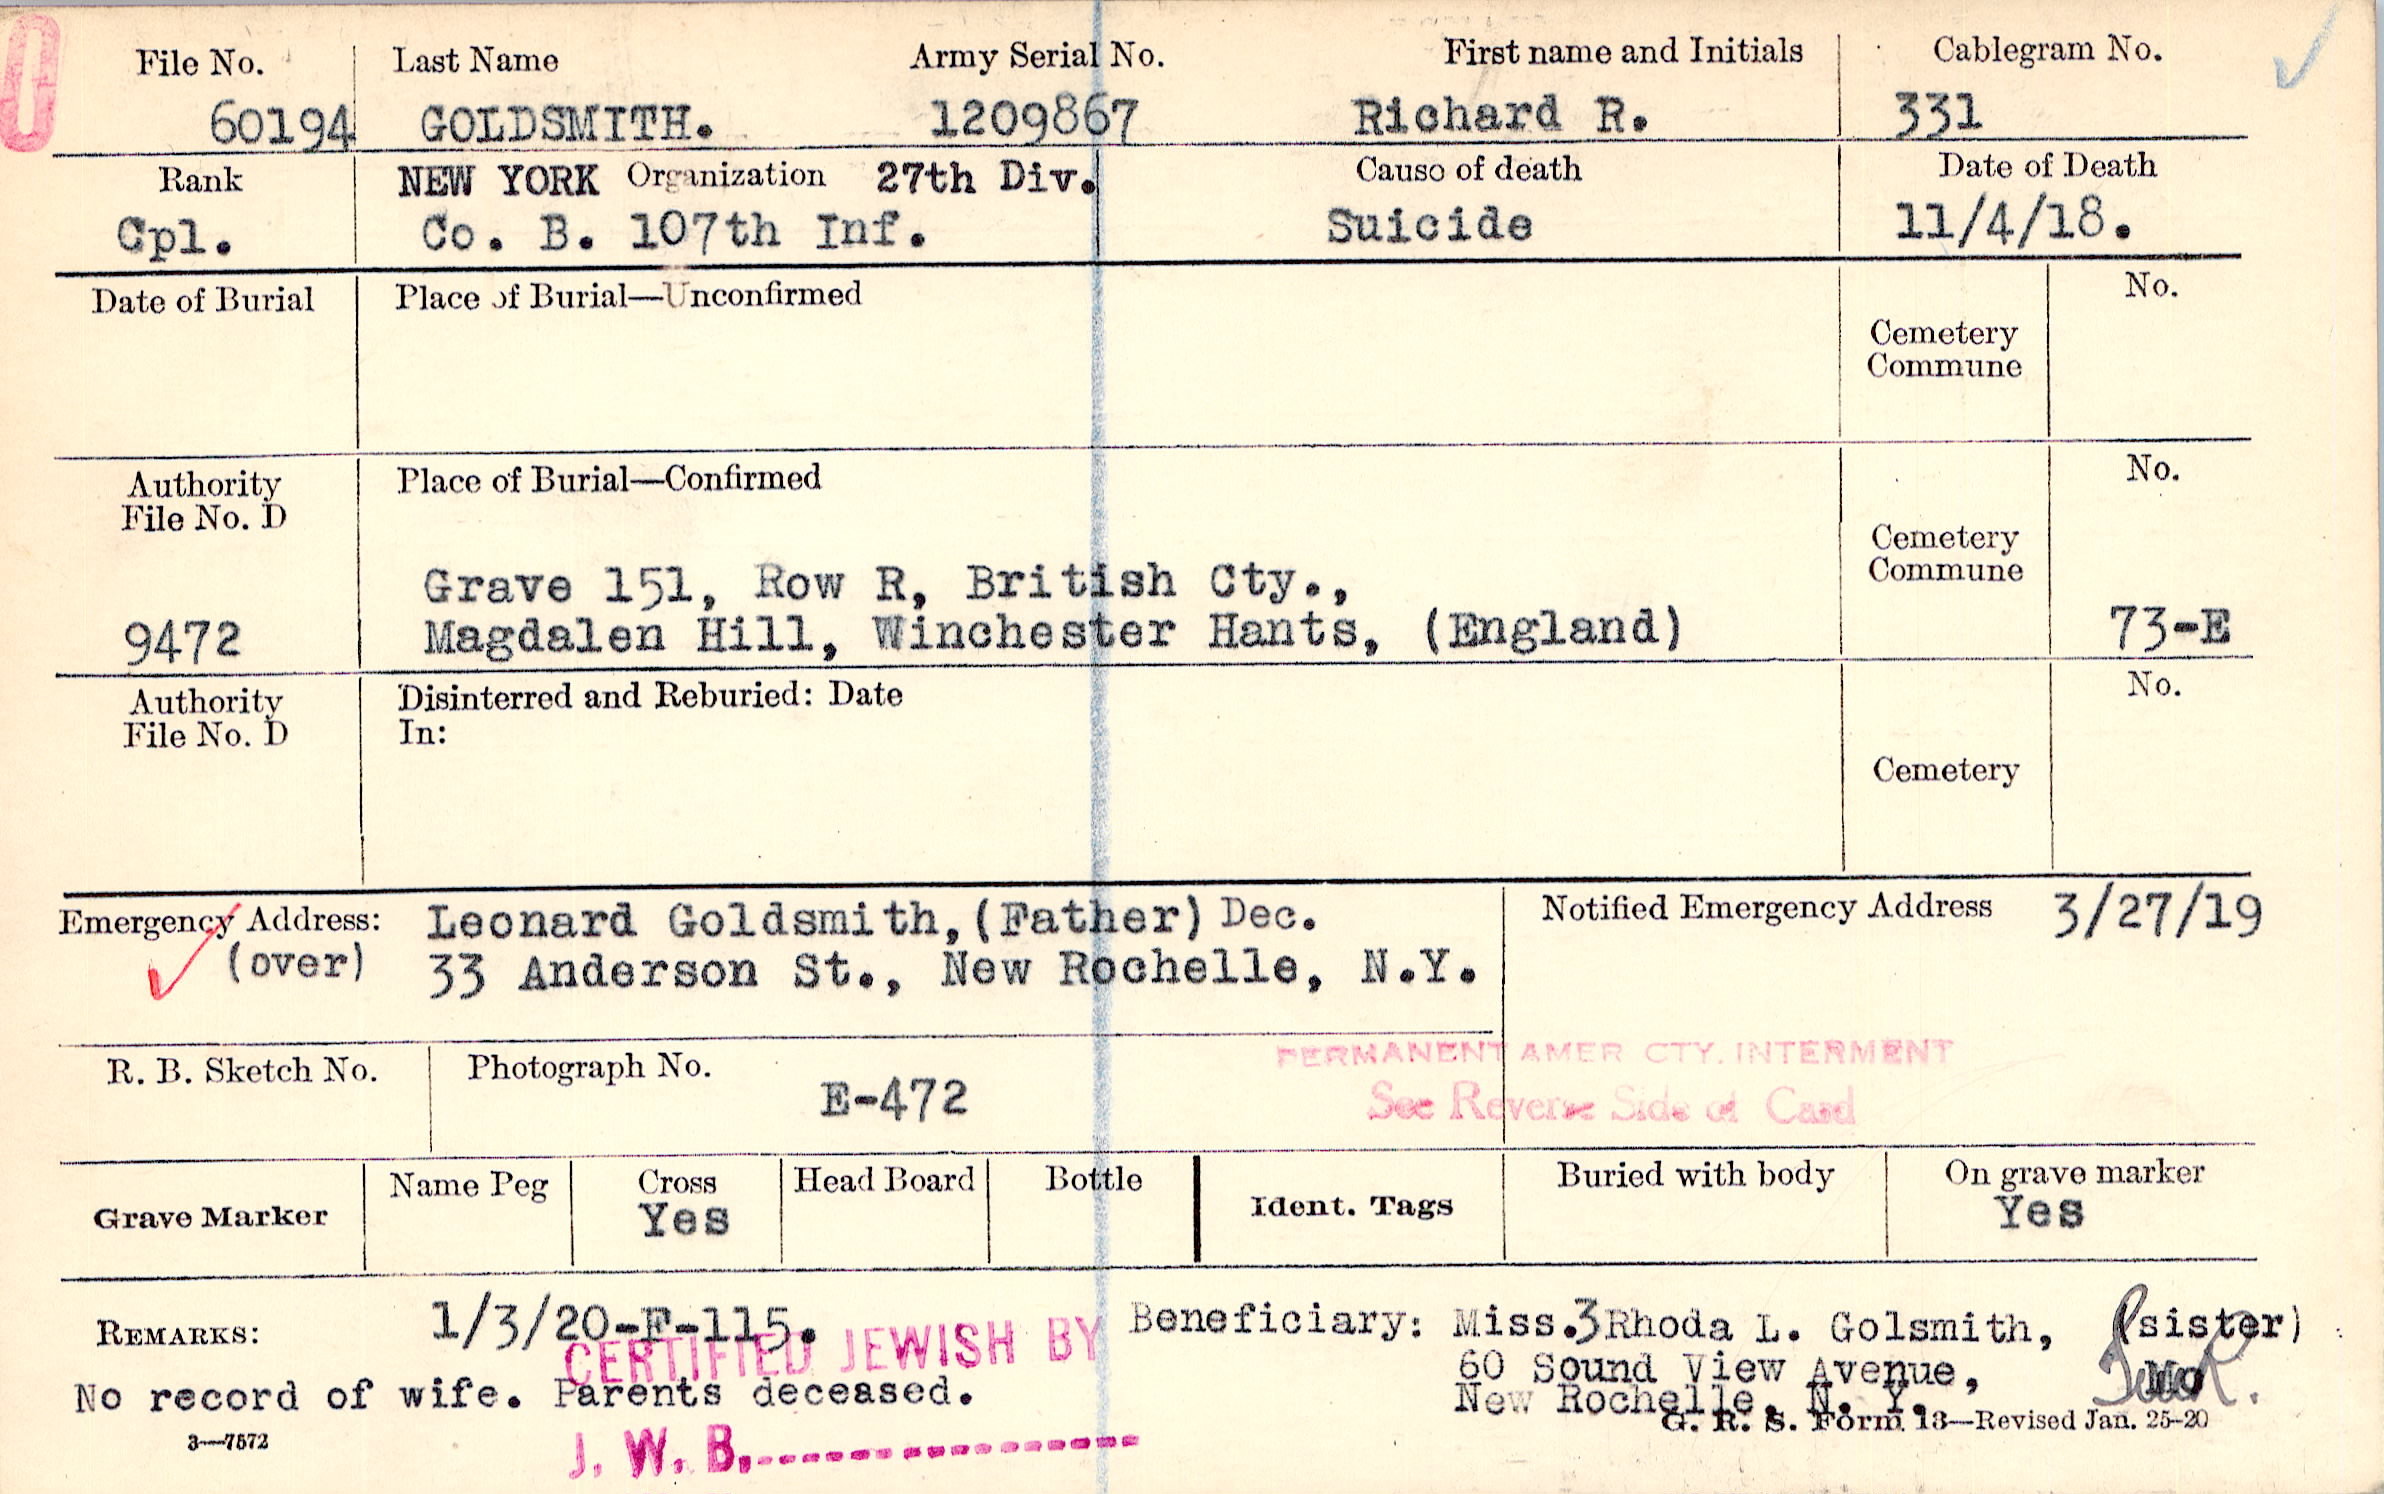 File No. Last Name Army Serial No. First name and Initials Cablegram No.
60194 GOLDSMITH. 1209867 Richard R. 331
Rank NEW YORK Organization 27th Div. Cause of death Date of Death
Cpl. Co. B. 107th Inf. Suicide 11/4/18.
Date of Burial Place of Burial—Unconfirmed No.
Cemetery
Commune
Authority Place of Burial—Confirmed No.
File No. D
Cemetery
Commune
Grave 151, Row R, British Cty.,
9472 Magdalen Hill, Winchester Hants, (England) 73-E
Authority Disinterred and Reburied: Date No.
File No. D In:
Cemetery
Emergency Address: Leonard Goldsmith, (Father) Dec. Notified Emergency Address 3/27/19
(over) 33 Anderson St., New Rochelle, N.Y.
R. B. Sketch No. Photograph No. E-472
PERMANENT AMER CTY. INTERMENT
See Reverse Side of Card
Grave Marker Name Peg Cross Head Board Bottle Ident. Tags Buried with body On grave marker
Yes Yes
REMARKS: 1/3/20-F-115. Beneficiary: Miss.3Rhoda L. Golsmith, (sister)
CERTIFIED JEWISH BY
60 Sound View Avenue,
No record of wife. Parents deceased. New Rochelle, N. Y.
J. W. B.
3—7572 G. R. S. Form 13—Revised Jan. 25-20